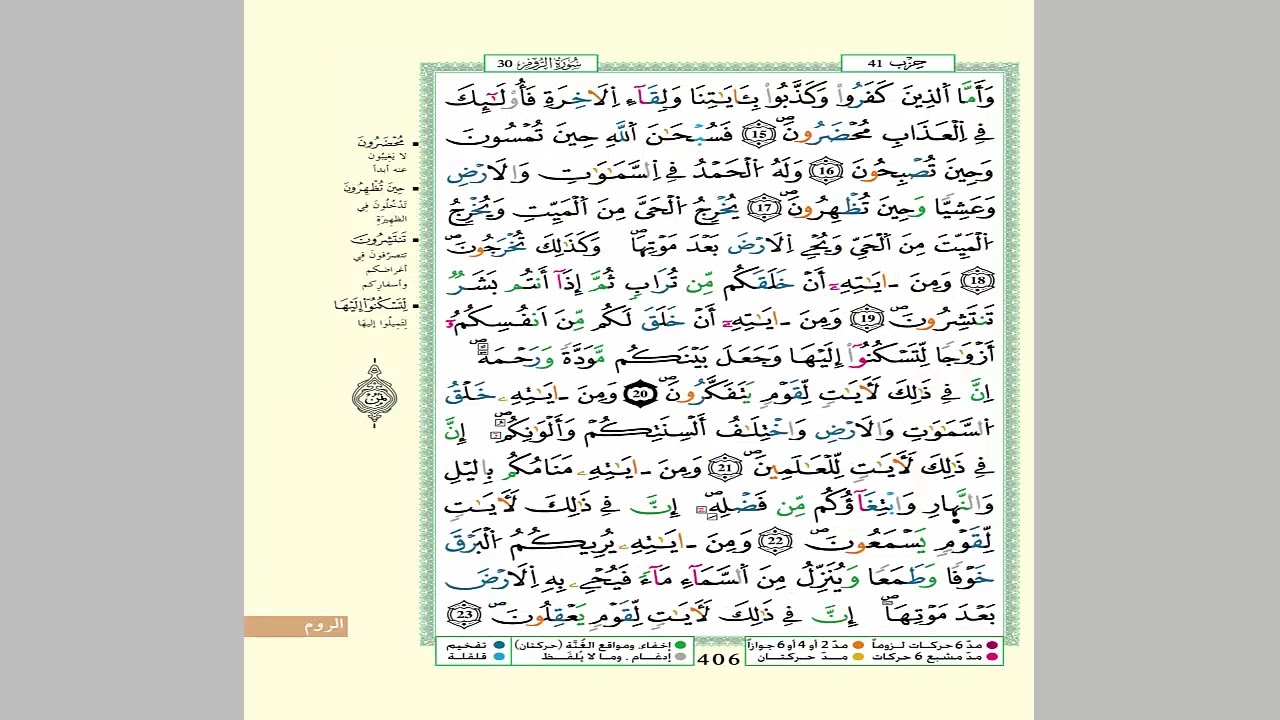 سُورَةُ الرُّومِ 30
حِزْب 41
وَأَمَّا اَ۬لذِينَ كَفَرُواْ وَكَذَّبُواْ بِـَٔايَٰتِنَا وَلِقَآءِ اِ۬لَاخِرَةِ فَأُوْلَٰٓئِكَ
فِي اِ۬لْعَذَابِ مُحْضَرُونَۖ 15 فَسُبْحَٰنَ اَ۬للَّهِ حِينَ تُمْسُونَ
وَحِينَ تُصْبِحُونَ 16 وَلَهُ اُ۬لْحَمْدُ فِي اِ۬لسَّمَٰوَٰتِ وَالَارْضِ
وَعَشِيّٗا وَحِينَ تُظْهِرُونَۖ 17 يُخْرِجُ اُ۬لْحَيَّ مِنَ اَ۬لْمَيِّتِ وَيُخْرِجُ
اُ۬لْمَيِّتَ مِنَ اَ۬لْحَيِّ وَيُحْيِ اِ۬لَارْضَ بَعْدَ مَوْتِهَاۖ وَكَذَٰلِكَ تُخْرَجُونَۖ
18 وَمِنَ اٰيَٰتِهِۦٓ أَنْ خَلَقَكُم مِّن تُرَابٖ ثُمَّ إِذَآ أَنتُم بَشَرٞ
تَنتَشِرُونَۖ 19 وَمِنَ اٰيَٰتِهِۦٓ أَنْ خَلَقَ لَكُم مِّنَ اَنفُسِكُمُۥٓ
أَزْوَٰجٗا لِّتَسْكُنُوٓاْ إِلَيْهَا وَجَعَلَ بَيْنَكُم مَّوَدَّةٗ وَرَحْمَةًۖ
اِنَّ فِي ذَٰلِكَ لَأٓيَٰتٖ لِّقَوْمٖ يَتَفَكَّرُونَۖ 20 وَمِنَ اٰيَٰتِهِۦ خَلْقُ
اُ۬لسَّمَٰوَٰتِ وَالَارْضِ وَاخْتِلَٰفُ أَلْسِنَتِكُمْ وَأَلْوَٰنِكُمُۥٓۖ إِنَّ
فِي ذَٰلِكَ لَأٓيَٰتٖ لِّلْعَٰلَمِينَۖ 21 وَمِنَ اٰيَٰتِهِۦ مَنَامُكُم بِاليْلِ
وَالنَّهارِ وَابْتِغَآؤُكُم مِّن فَضْلِهِۦٓۖ إِنَّ فِي ذَٰلِكَ لَأٓيَٰتٖ
لِّقَوْمٖ يَسْمَعُونَۖ 22 وَمِنَ اٰيَٰتِهِۦ يُرِيكُمُ اُ۬لْبَرْقَ
خَوْفٗا وَطَمَعٗا وَيُنَزِّلُ مِنَ اَ۬لسَّمَآءِ مَآءٗ فَيُحْيِۦ بِهِ اِ۬لَارْضَ
بَعْدَ مَوْتِهَآۖ إِنَّ فِي ذَٰلِكَ لَأٓيَٰتٖ لِّقَوْمٖ يَعْقِلُونَۖ 23
مُحْضَرُونَ
لا يَغِيبُون
عنه أبداً
حِينَ تُظْهِرُونَ
تَدْخُلُونَ فِي
الظهيرَةِ
تَنتَشِرُونَ
تتصرّفون في
أغراضكم
وأسفاركم
لِتَسْكُنُوٓاْ إِلَيْهَا
لِتَمِيلُوا إليها
ثمن
الروم
مدّ 6 حركات لـزوماً
مدّ 2 أو 4 أو 6 جوازاً
مدّ مشبع 6 حركات
مــدّ حـركتــان
406
إخفاء، ومواقع الغُنَّة (حركتان)
تفخيم
إدغـام، ومـا لا يُلفـظ
قلقلة